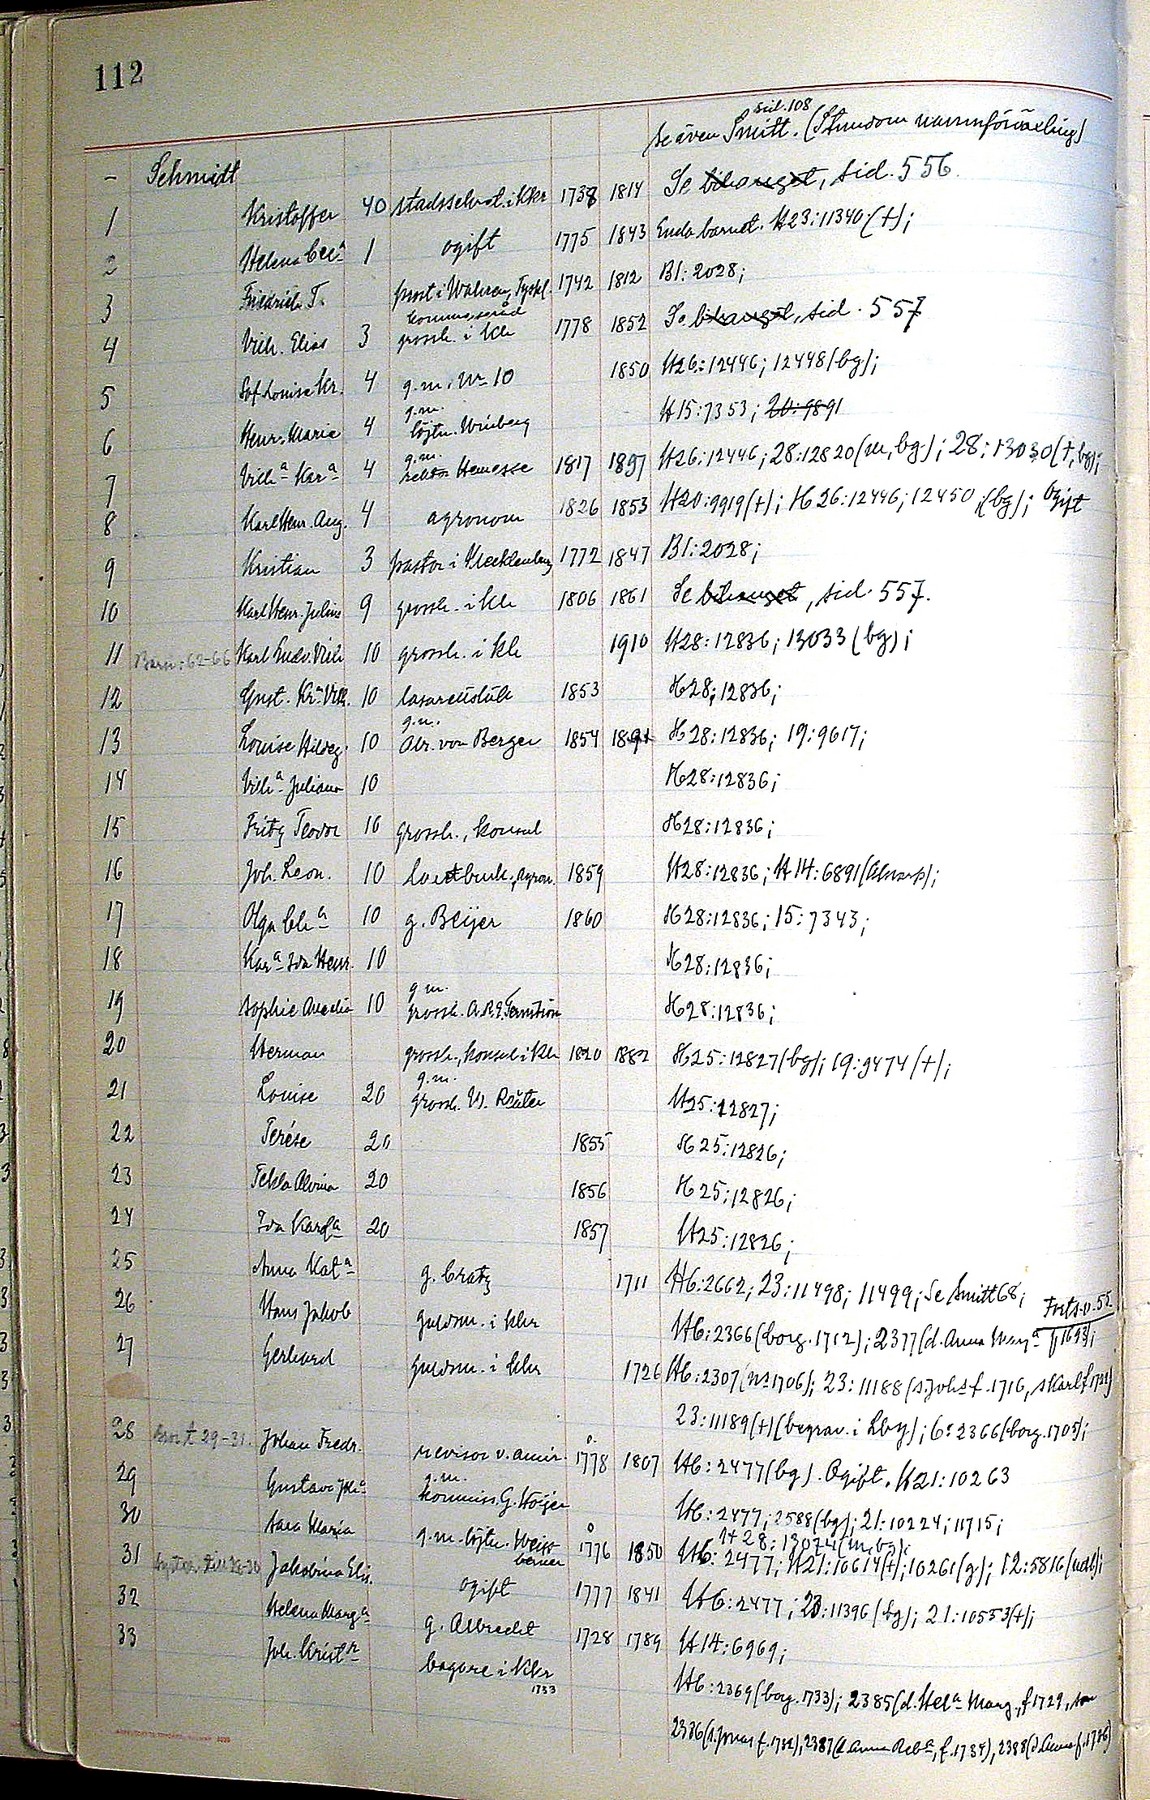 112
sid. 108
Se även Smitt. (Stundom namnförväxling)
– Schmidt
1 Kristoffer 40 stadssekret. i Kkr 1738 1814 Se bihanget, sid. 556.
2 Helena Cec:a 1 ogift 1775 1843 Enda barnet. H23:11340(†);
3 Fridrich T. prost i Tyskl. 1742 1812 B1:2028;
4 Vilh. Elias 3 grossh. i Kh 1778 1852 Se bihanget, sid. 557
5 Sof Louise Kr. 4 g.m. Nr 10 1850 H26:12446; 12448(bg);
6 Henr. Maria 4 g.m. löjtn. Winberg H15:7353; 20:9891
7 Vilh:a Kar:a 4 g.m. rektor 1817 1897 H26:12446; 28:12820(m, bg.); 28:13030(†, bg);
8 Karl Henr. Aug. 4 agronom 1826 1853 H20:9919(†); H26:12446; 12450(bg); Ogift
9 Kristian 3 pastor i Mecklenburg 1772 1847 B1:2028;
10 Karl Henr. Julius 9 grossh. i Kh 1806 1861 Se bihanget, sid. 557.
11 Barn: 62-66 Karl Ludv. Vilh 10 grossh. i Kh 1910 H28:12836; 13033(bg);
12 Gust. Kr:n Vilh. 10 1853 H28:12836;
13 Louise Hildeg. 10 g.m. von Berger 1854 1891 H28:12836; 19:9617;
14 Vilh:a Juliana 10 H28:12836;
15 Fritz Teodor 10 grossh., konsul H28:12836;
16 Joh. Leon. 10 lantbruk., agron. 1859 H28:12836; H14:6891(Alnarp);
17 Olga 10 g. Beijer 1860 H28:12836; 15:7343;
18 Kar:a Ida Henr. 10 H28:12836;
19 Sophie Amelia 10 g.m. grossh. H28:12836;
20 Herman grossh., konsul i Kh 1820 1882 H25:12827(bg); 19:9474(†);
21 Louise 20 g.m. grossh. H25:12827;
22 Terése 20 1855 H25:12826;
23 Tekla Alvina 20 1856 H25:12826;
24 Ida Karol:a 20 1857 H25:12826;
25 Anna Kat:a g. Cratz 1711 H6:2662; 23:11498; 11499; Se Smitt 68; Forts. v. 55
26 Hans Jakob guldsm. i Kkr H6:2366(borg. 1712); 2377(d. Anna Marg:a
27 Gerhard guldsm. i Kkr 1726 H6:2307(nr 1706); 23:11188(s. Joh:s f. 1716, s Karl f 1721)
23:11189(†)(begrav. i Lby); 6:2366(borg. 1705);
28 29-31. Johan Fredr. revisor v. amir. 1778 1807 H6:2477(bg). Ogift. H21:10263
29 Gustava g.m. kommiss. G. Höijer H6:2477; 2588(bg); 21:10224; 11715;
30 Sara Maria g.m. löjtn. Weissberner 1776 1850 H28:13074(m, bg); H6:2477; H21:10614(†); 10261(g); 12:5816
31 Jakobina Elis. ogift 1777 1841 H6:2477; 23:11396(bg); 21:10553(†);
32 Helena Marg:a g. Albrecht 1728 1789 H14:6969;
33 Joh. Krist:n bagare i Kkr 1733 H6:2369(borg. 1733); 2385(d. Hel:a Marg., f 1729,
2386(s. Jonas f. 1732), 2387(d Anna Reb:a, f. 1734), 2388(d Anna f. 1736)